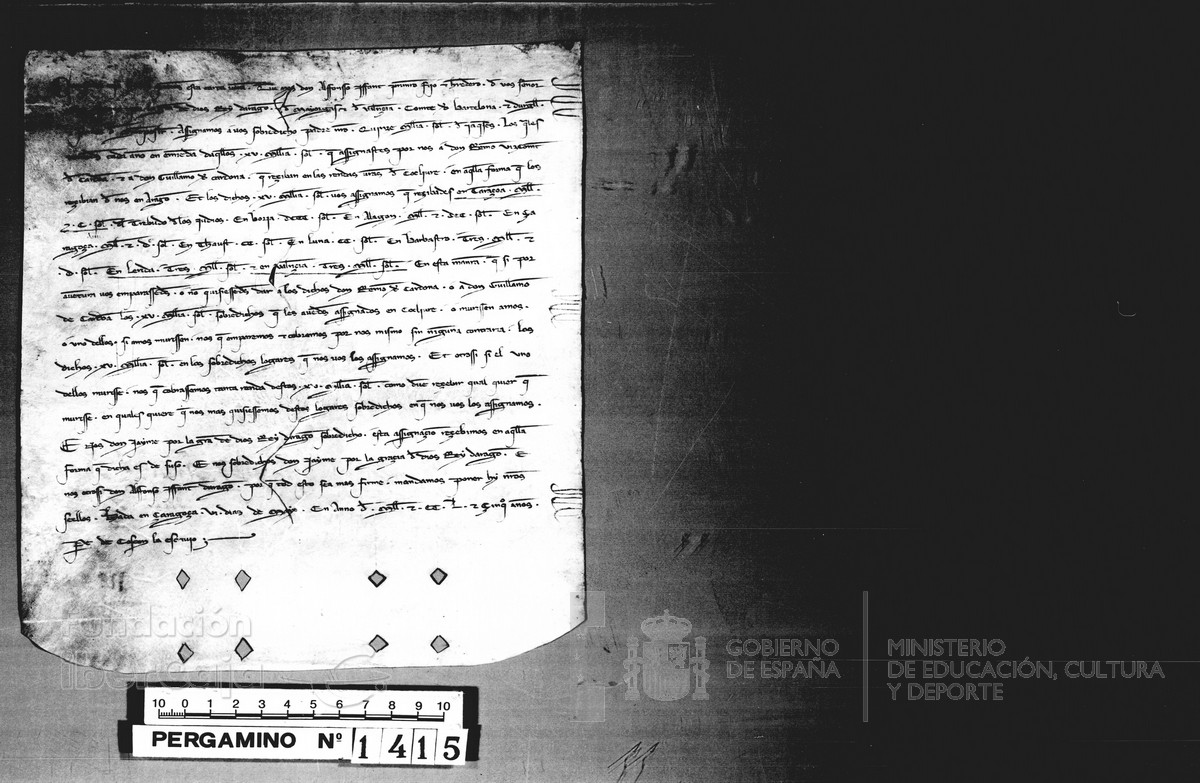 esta carta Que nos don Alfonso Iffant primero fijo & heredero. de vos senor
de dios Rey daragon. de Mayorgas & de Valençia. Comte de Barcelona. & durgell.
Assignamos a vos sobredicho padre nro. Quinze Millia. sol. de jaqueses. Los qles
cada ano en emienda daqllos. xv. Millia. sol. q assignastes por nos a don Remo vizcomt
de Cardona. & a don Guillamo de Cardona. q reziban en las rendas uras de Coclyure. en aqlla forma q los
rezibian de nos en Arago. Et los dichos. xv. Millia. sol. vos assignamos q rezibades en Taraçona. Mill.
& C. sol. del Trebudo de los judios. En Borja. dCCC. sol. En Alagon. Mill. &. dCC. sol. En Ça
ragoça. Mill. &. d. sol. En Thaust. CC. sol. En Luna. CC. sol. En Barbastro. Tres. Mill. &
.d. sol. En Lerida. Tres. Mill. sol. & en Valençia. Tres. Mill. sol. En esta manera. q si por
auentura vos emparassedes. o no quisiessedes dar a los dichos don Remo de Cardona. o a don Guillamo
de Cardona los. xv. Millia. sol. sobredichos q les auedes assignados en Coclyure. o murissen amos.
o uno dellos. si amos murissen. nos q emparemos & cobremos por nos mismo sin ninguna contraria. los
dichos. xv. Millia. sol. en los sobredichos logares q nos vos los assignamos. Et otrossi si el uno
dellos murisse. nos q cobrassemos tanta renda destos. xv. Millia. sol. como deue rezebir qual quier q
murisse. en quales quiere q nos mas quisiessemos destos logares sobredichos en q nos vos los assignamos.
E nos don Jayme por la gra de dios Rey darago sobredicho. esta assignaçio rezebimos en aqlla
forma q dicha es de suso. E nos sobredichos don Jayme por la graçia de dios Rey darago. E
nos otrossi don Alfonso Iffant darago. por q tod esto sea mas firme. mandamos poner hy nros
seellos. Dada en Çaragoça. vi. dias de Mayo. En Anno de. Mill. &. CC. L. & Çinqo anos.
de la escriuio
Fundación
iberCaja
GOBIERNO
DE ESPAÑA
MINISTERIO
DE EDUCACIÓN, CULTURA
Y DEPORTE
10 0 1 2 3 4 5 6 7 8 9 10
PERGAMINO Nº 1415